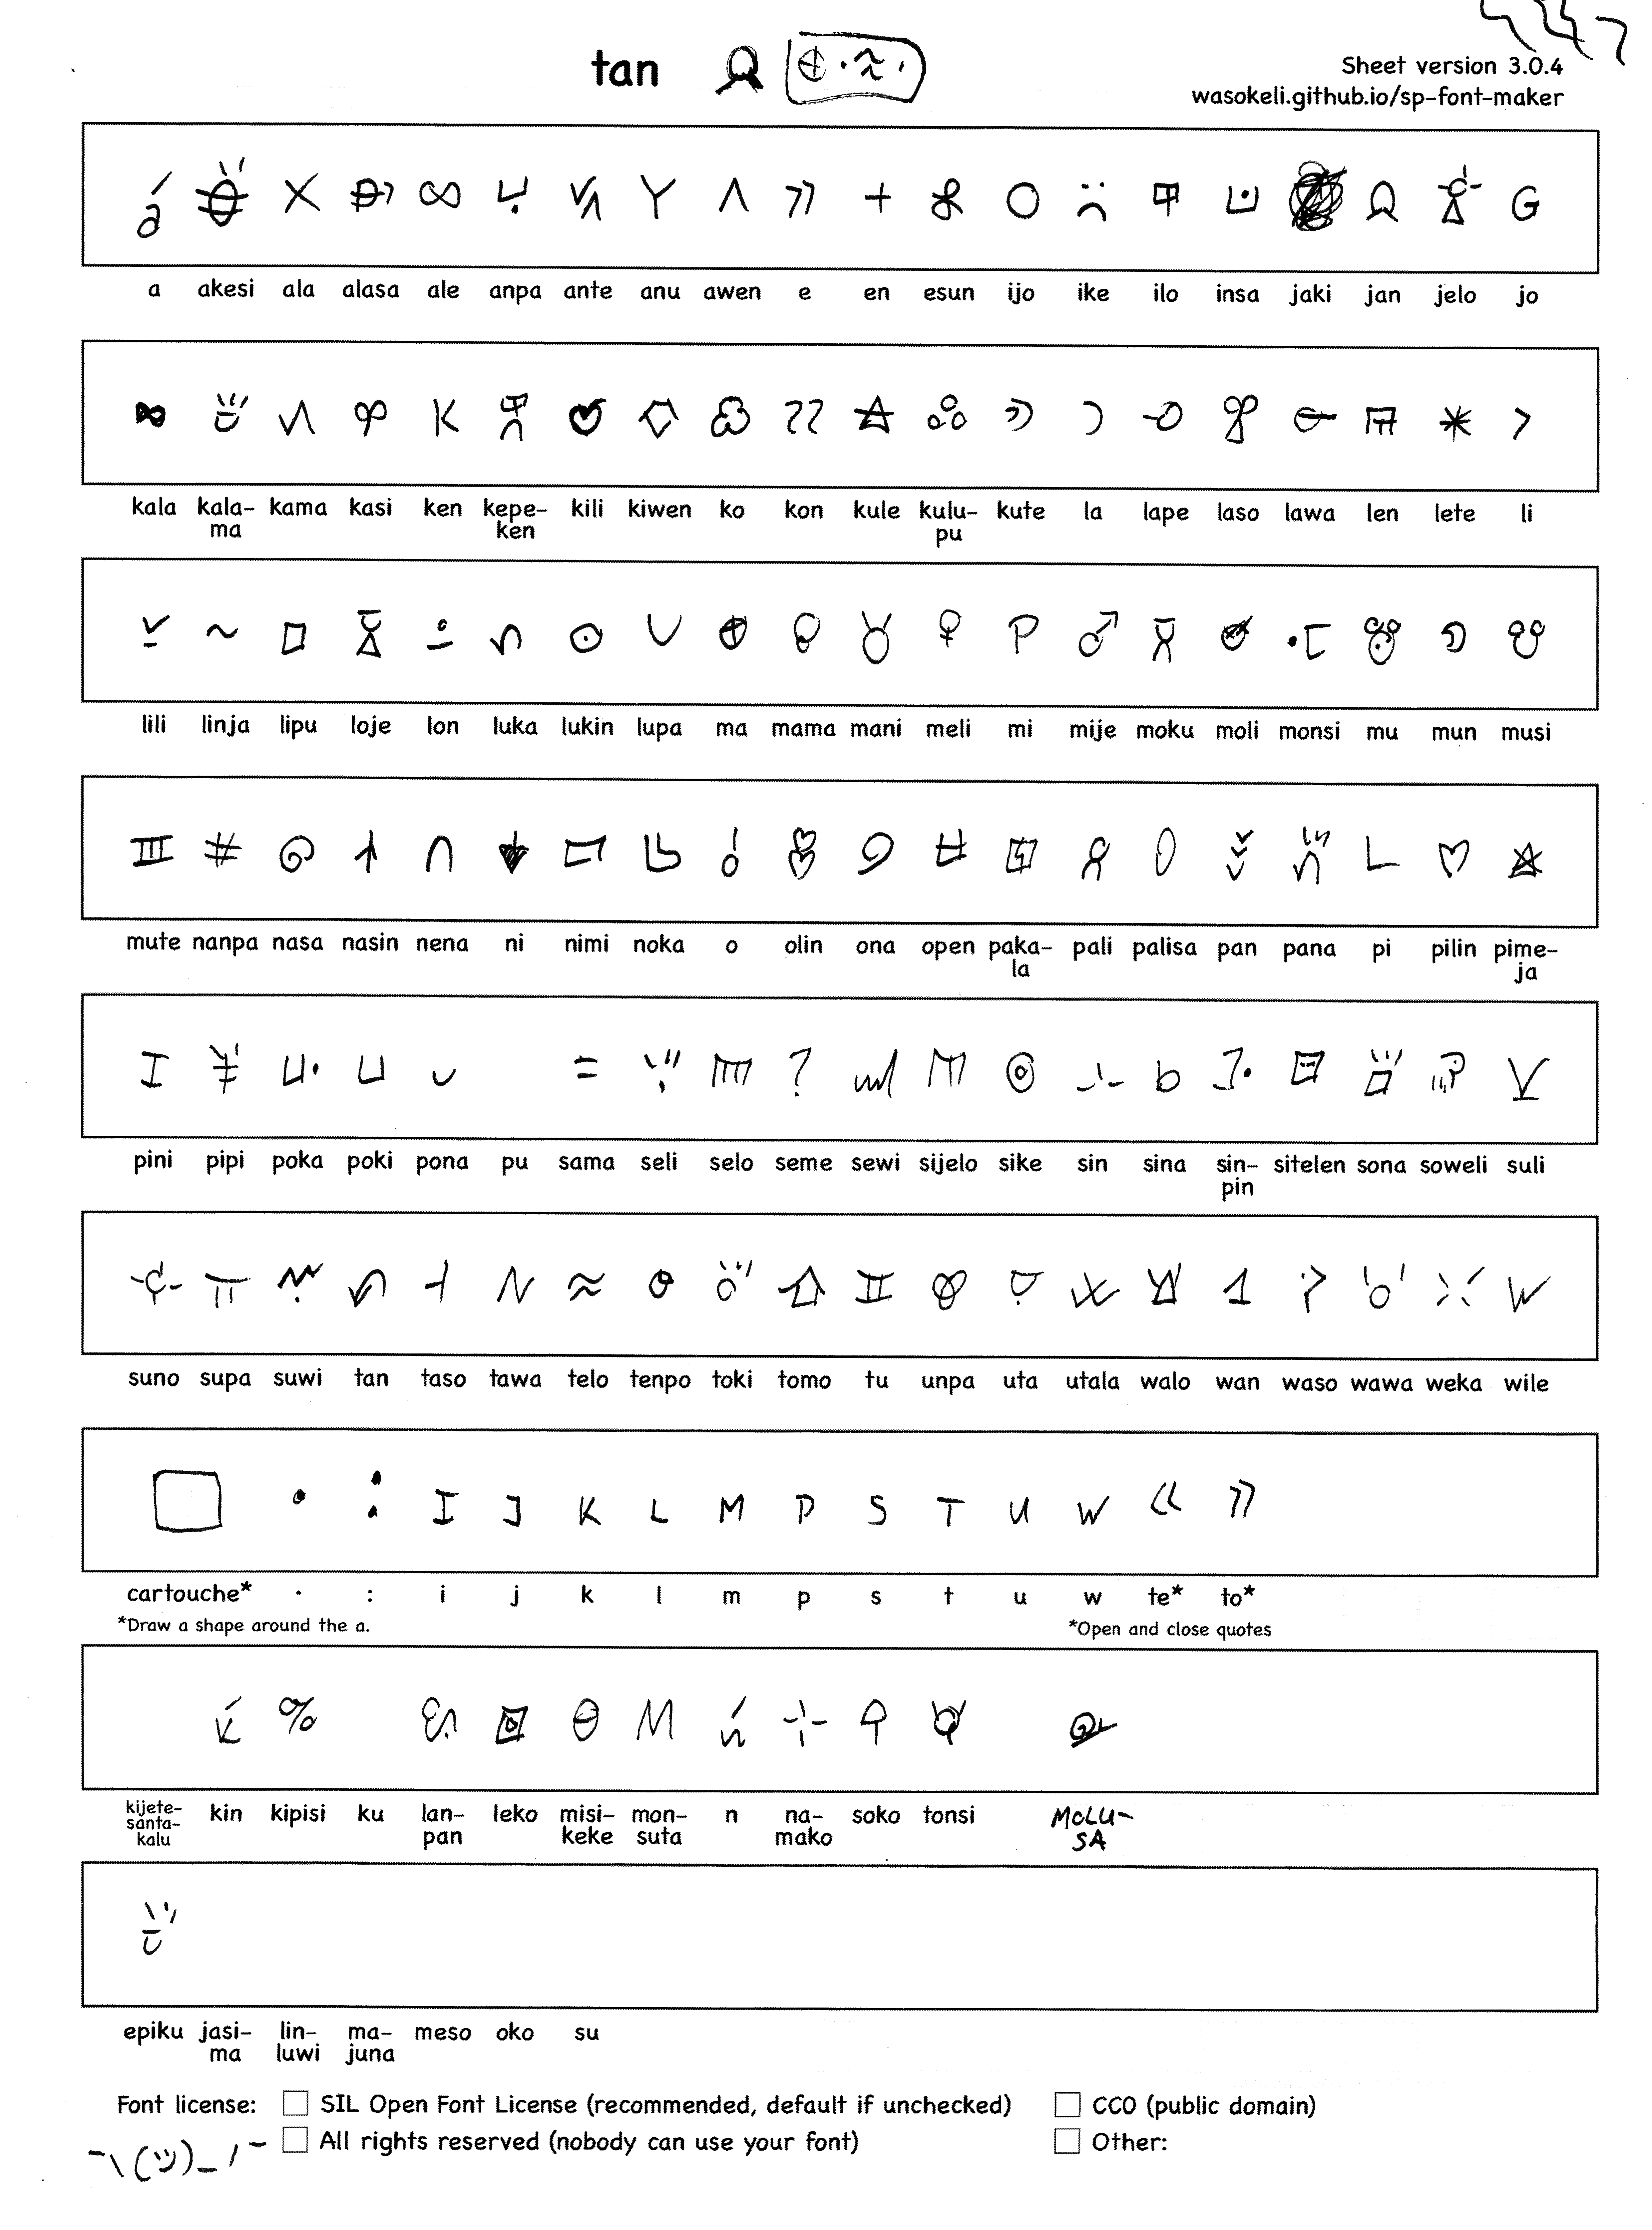 tan
Sheet version 3.0.4
wasokeli.github.io/sp-font-maker
a akesi ala alasa ale anpa ante anu awen e en esun ijo ike ilo insa jaki jan jelo jo
kala kala-ma kama kasi ken kepe-ken kili kiwen ko kon kule kulu-pu kute la lape laso lawa len lete li
lili linja lipu loje lon luka lukin lupa ma mama mani meli mi mije moku moli monsi mu mun musi
mute nanpa nasa nasin nena ni nimi noka o olin ona open paka-la pali palisa pan pana pi pilin pime-ja
pini pipi poka poki pona pu sama seli selo seme sewi sijelo sike sin sina sin-pin sitelen sona soweli suli
suno supa suwi tan taso tawa telo tenpo toki tomo tu unpa uta utala walo wan waso wawa weka wile
I J K L M P S T U W « »
cartouche* · : i j k l m p s t u w te* to*
*Draw a shape around the a.
*Open and close quotes
kijete-santa-kalu kin kipisi ku lan-pan leko misi-keke mon-suta n na-mako soko tonsi MOLU-SA
epiku jasi-ma lin-luwi ma-juna meso oko su
Font license: SIL Open Font License (recommended, default if unchecked) CC0 (public domain)
All rights reserved (nobody can use your font) Other:
¯\(ツ)_/¯